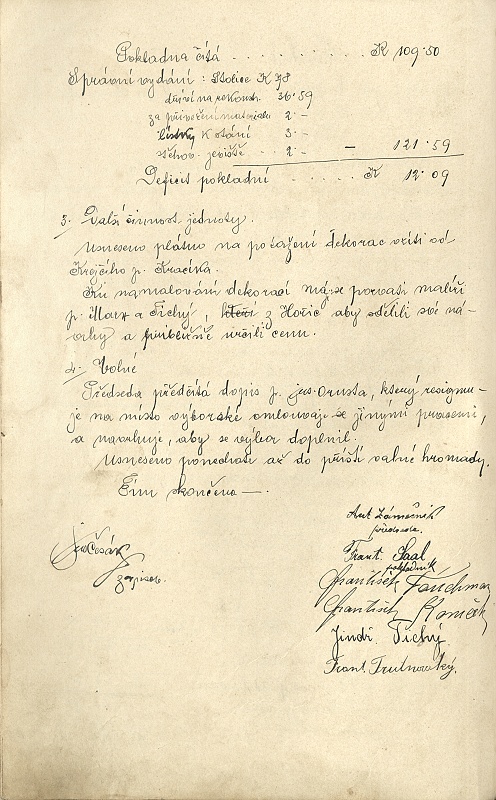 Pokladna čítá . . . . . . . . . K 109·50
Správní vydání : Stolice K 78
dříví na rekonstr. 36·59
za přivezení materialu 2 –
lístky k stání 3 –
stěhov. jeviště . 2 – – 121·59
Deficit pokladní . . . . . . K 12·09
3. Další činnost jednoty.
Usneseno plátno na potažení dekorac vzíti od
Krejčího p. Kracíka.
Ku namalování dekorací mají se pozvati malíři
p. Marx a Tichý, kteří z Hořic, aby sdělili své ná-
vrhy a přibližně určili cenu.
4. Volné
Předseda předčítá dopis p. , který resignu-
je na místo výborské omlouvaje se jinými pracemi,
a navrhuje, aby se výbor doplnil.
Usneseno ponechati až do příští valné hromady.
Tím skončeno —.
Ant Zámečník
předseda.
Frant. Saal
pokladník
Jos Česák
zapisov.
František Fouchman
František
Jindř. Tichý
Frant. Trutnovský.